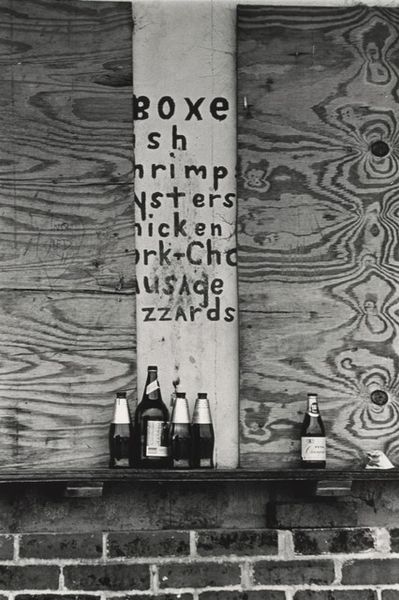 BOXE
sh
hrimp
ysters
hicken
ork-Cho
ausage
zzards